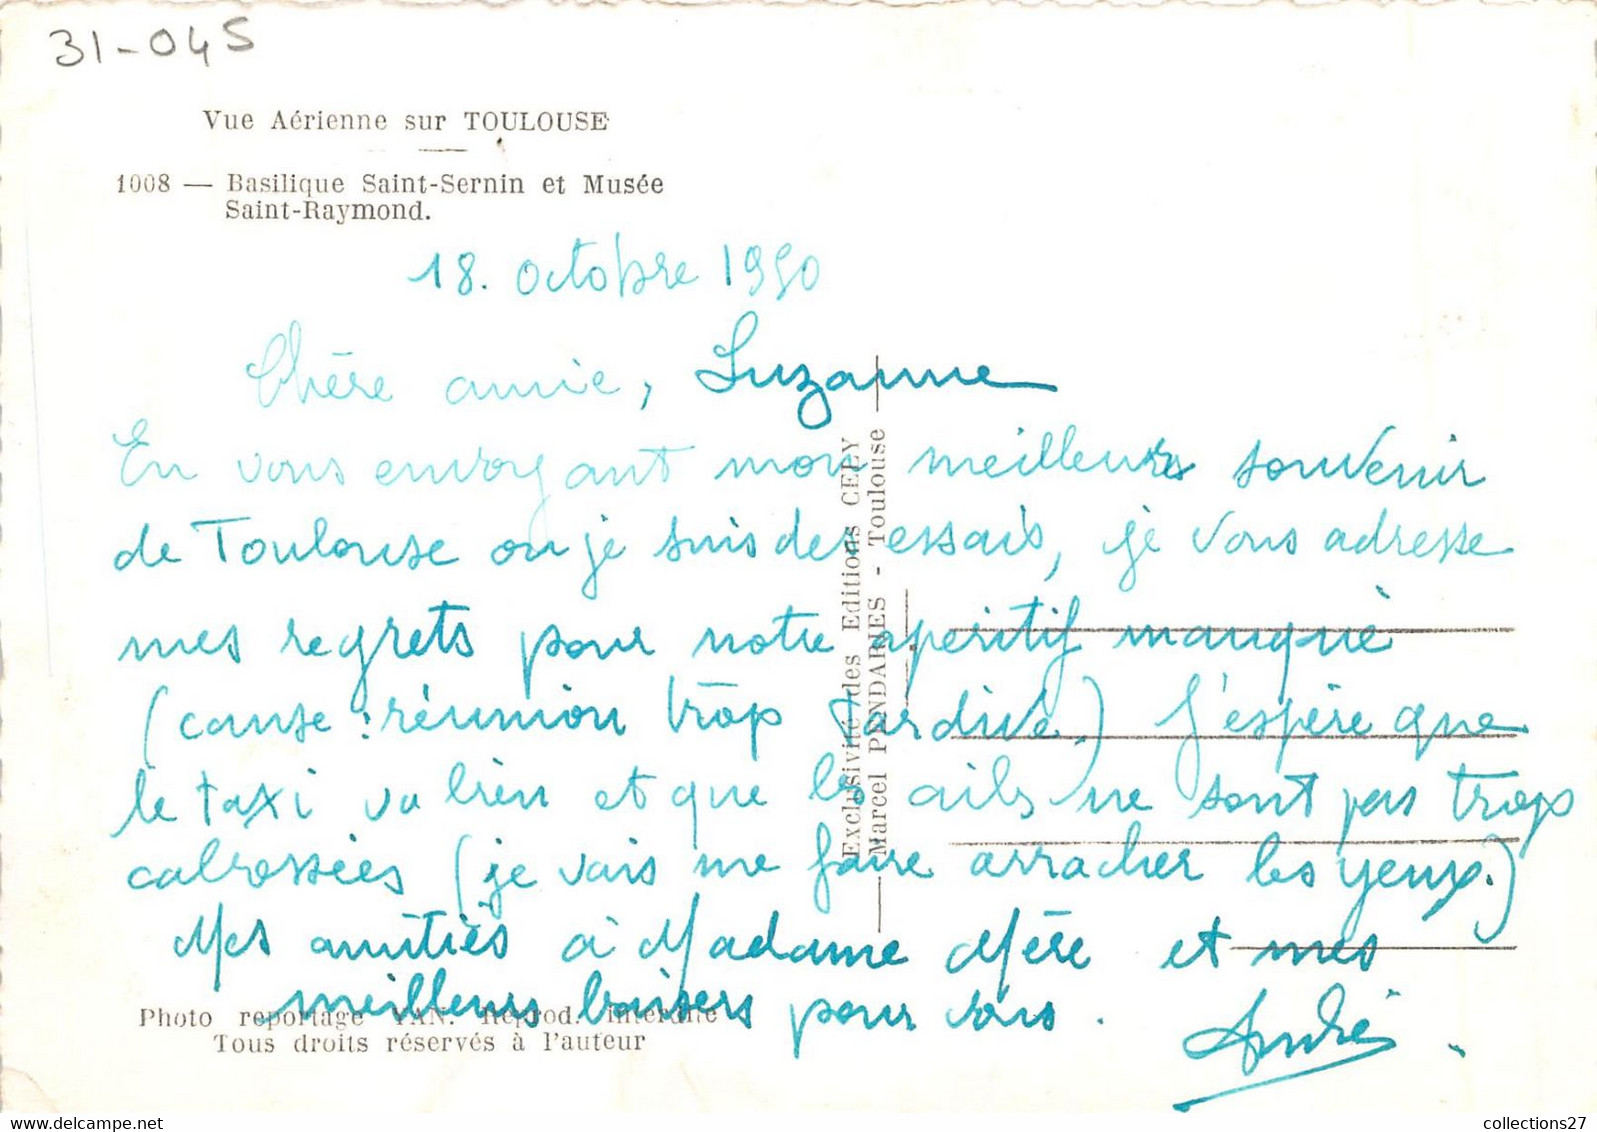 31-045
Vue Aérienne sur TOULOUSE
1008 — Basilique Saint-Sernin et Musée
Saint-Raymond.
18. octobre 1950
Chère amie, Suzanne
En vous envoyant mon meilleurs souvenir
de Toulouse ou je suis des essais, je vous adresse
mes regrets pour notre apéritif manqué
(cause : réunion trop tardive.) J'espère que
le taxi va bien et que les ails ne sont pas trop
cabossées (je vais me faire arracher les yeux.)
Mes amitiés à Madame Mère et mes
meilleurs baisers pour vous.
André
Exclusivité des Editions CELY
Marcel PENDARIES - Toulouse
Photo reportage YAN. Reprod. interdite
Tous droits réservés à l'auteur
collections27